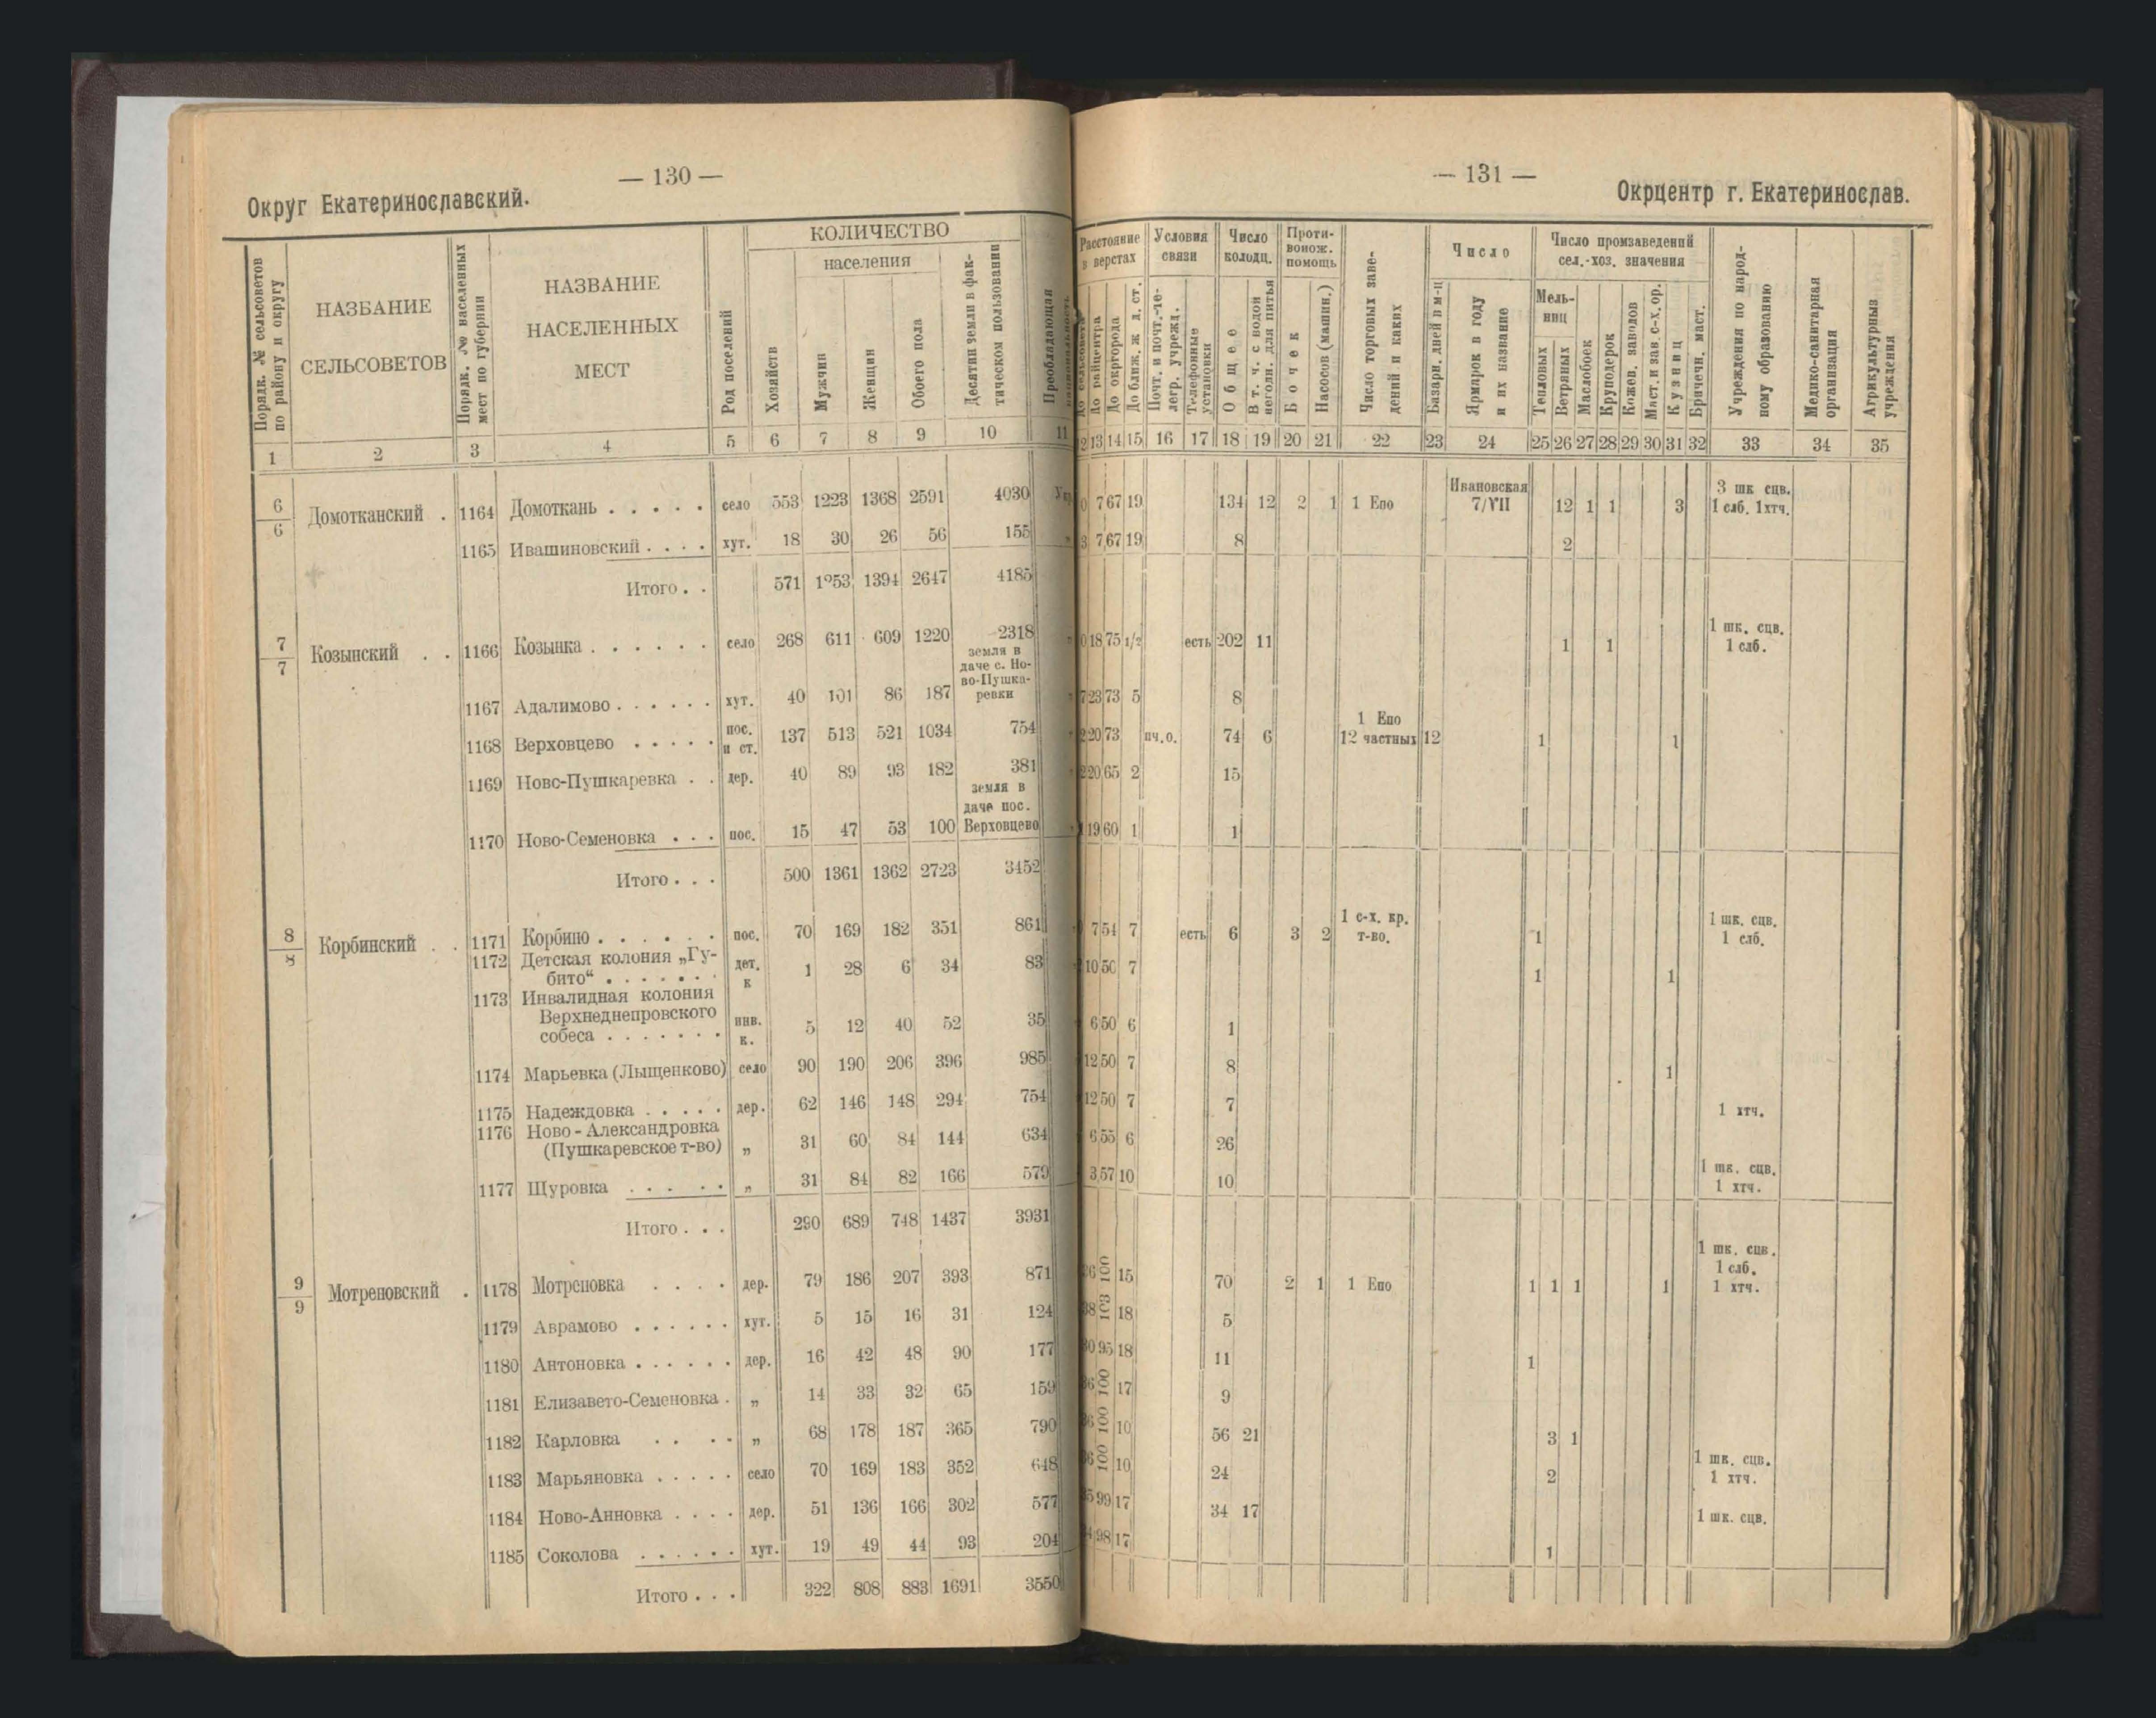 — 130 —
Округ Екатеринославский.
Порядк. № сельсоветов по району и округу
НАЗВАНИЕ СЕЛЬСОВЕТОВ
Порядк. № населенных мест по губернии
НАЗВАНИЕ НАСЕЛЕННЫХ МЕСТ
Род поселений
КОЛИЧЕСТВО
населения
Хозяйств
Мужчин
Женщин
Обоего пола
Десятин земли в фактическом пользовании
Преобладающая
1 2 3 4 5 6 7 8 9 10 11
6/6 Домотканский . 1164 Домоткань . . . . . село 553 1223 1368 2591 4030 Укр.
1165 Ивашиновский . . . . хут. 18 30 26 56 155 "
Итого . . 571 1253 1394 2647 4185
7/7 Козынский . . 1166 Козынка . . . . . . село 268 611 609 1220 2318 "
земля в
даче с. Но-
во-Пушка-
ревки
1167 Адалимово . . . . . . хут. 40 101 86 187 "
1168 Верховцево . . . . . пос. и ст. 137 513 521 1034 754 "
1169 Ново-Пушкаревка . . дер. 40 89 93 182 381 "
земля в
даче пос.
Верховцево
1170 Ново-Семеновка . . . пос. 15 47 53 100 "
Итого . . . 500 1361 1362 2723 3452
8/8 Корбинский . . 1171 Корбино . . . . . . пос. 70 169 182 351 861
1172 Детская колония „Гу-
бито“ . . . . . . . дет. к 1 28 6 34 83
1173 Инвалидная колония
Верхнеднепровского
собеса . . . . . . . инв. к. 5 12 40 52 35
1174 Марьевка (Лыщенково) село 90 190 206 396 985
1175 Надеждовка . . . . . дер. 62 146 148 294 754
1176 Ново-Александровка
(Пушкаревское т-во) „ 31 60 84 144 634
1177 Щуровка . . . . . „ 31 84 82 166 579
Итого . . . 290 689 748 1437 3931
9/9 Мотреновский . 1178 Мотреновка . . . . дер. 79 186 207 393 871
1179 Аврамово . . . . . . хут. 5 15 16 31 124
1180 Антоновка . . . . . . дер. 16 42 48 90 177
1181 Елизавето-Семеновка . „ 14 33 32 65 159
1182 Карловка . . . . „ 68 178 187 365 790
1183 Марьяновка . . . . . село 70 169 183 352 648
1184 Ново-Анновка . . . . дер. 51 136 166 302 577
1185 Соколова . . . . . . хут. 19 49 44 93 204
Итого . . . 322 808 883 1691 3550
— 131 —
Окрцентр г. Екатеринослав.
Расстояние в верстах
До райцентра
До окргорода
До ближ. ж. д. ст.
Условия связи
Почт. и почт.-телегр. учрежд.
Телефонные установки
Число колодц.
Общее
В т. ч. с водой негодн. для питья
Противопож. помощь
Бочек
Насосов (машин.)
Число торговых заведений и каких
Число
Базарн. дней в м-ц
Ярмарок в году и их название
Число промзаведений сел.-хоз. значения
Мельниц
Тепловых
Ветряных
Маслобоек
Круподерок
Кожев. заводов
Маст. и зав. с-х. ор.
Кузниц
Бричечн. маст.
Учреждения по народному образованию
Медико-санитарная организация
Агрикультурныя учреждения
13 14 15 16 17 18 19 20 21 22 23 24 25 26 27 28 29 30 31 32 33 34 35
0 7 67 19 134 12 2 1 1 Епо Ивановская 7/VII 12 1 1 3 3 шк сцв. 1 слб. 1хтч.
3 7 67 19 8 2
0 18 75 1/2 есть 202 11 1 1 1 шк. сцв. 1 слб.
7 23 73 5 8
2 20 73 пч.о. 74 6 1 Епо 12 частных 12 1 1
2 20 65 2 15
19 60 1 1
7 54 7 есть 6 3 2 1 с-х. кр. т-во. 1 1 шк. сцв. 1 слб.
10 50 7 1 1
6 50 6 1
12 50 7 8 1
12 50 7 7 1 хтч.
6 55 6 26
3 57 10 10 1 шк. сцв. 1 хтч.
100 15 70 2 1 1 Епо 1 1 1 1 1 шк. сцв. 1 слб. 1 хтч.
103 18 5
95 18 11 1
100 17 9
100 10 56 21 3 1
100 10 24 2 1 шк. сцв. 1 хтч.
99 17 34 17 1 шк. сцв.
98 17 1